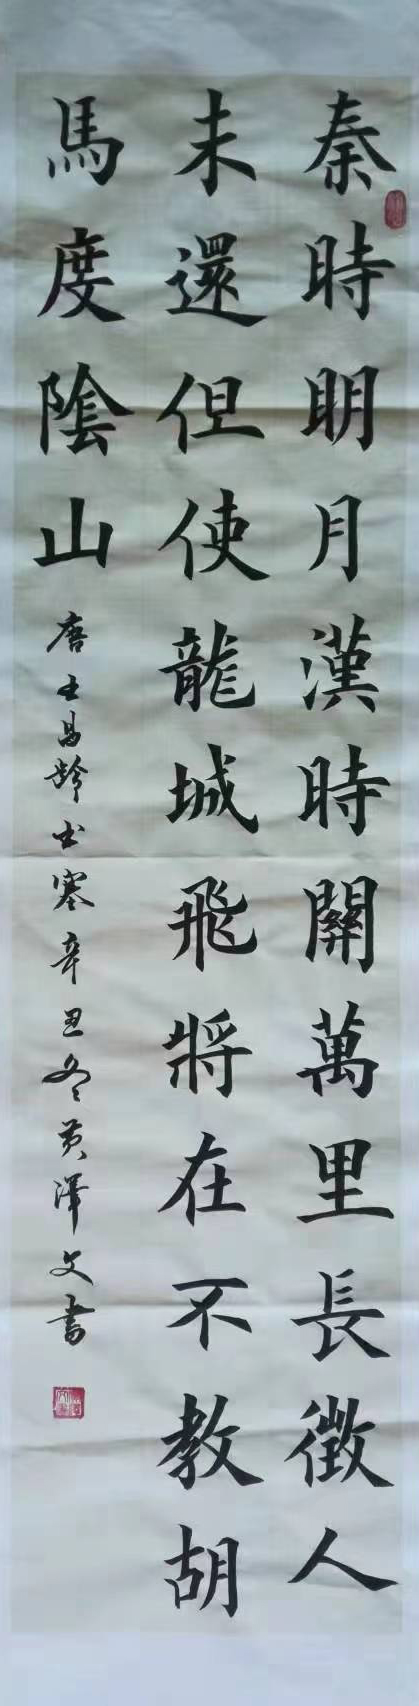 秦時明月漢時關萬里長徵人
未還但使龍城飛將在不教胡
馬度陰山
唐王昌齡出塞辛丑冬黃澤文書